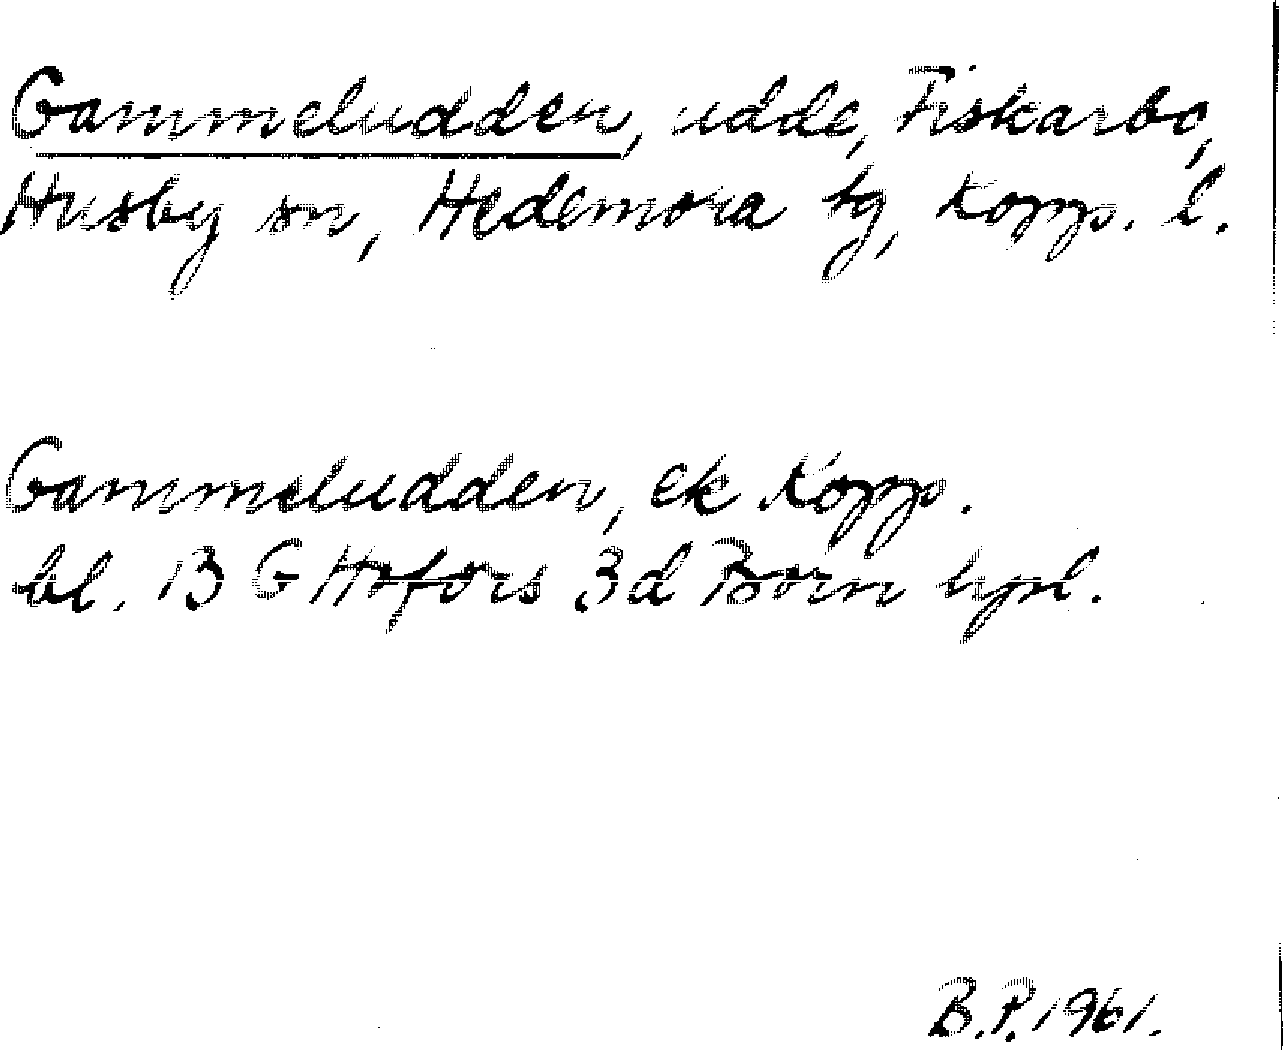 Gammeludden, udde, Fiskarbo,
Husby sn, Hedemora tg, Kopp. l.
Gammeludden, ek Kopp.
bl. 13 G Hofors 3 d Born
B.P. 1961.